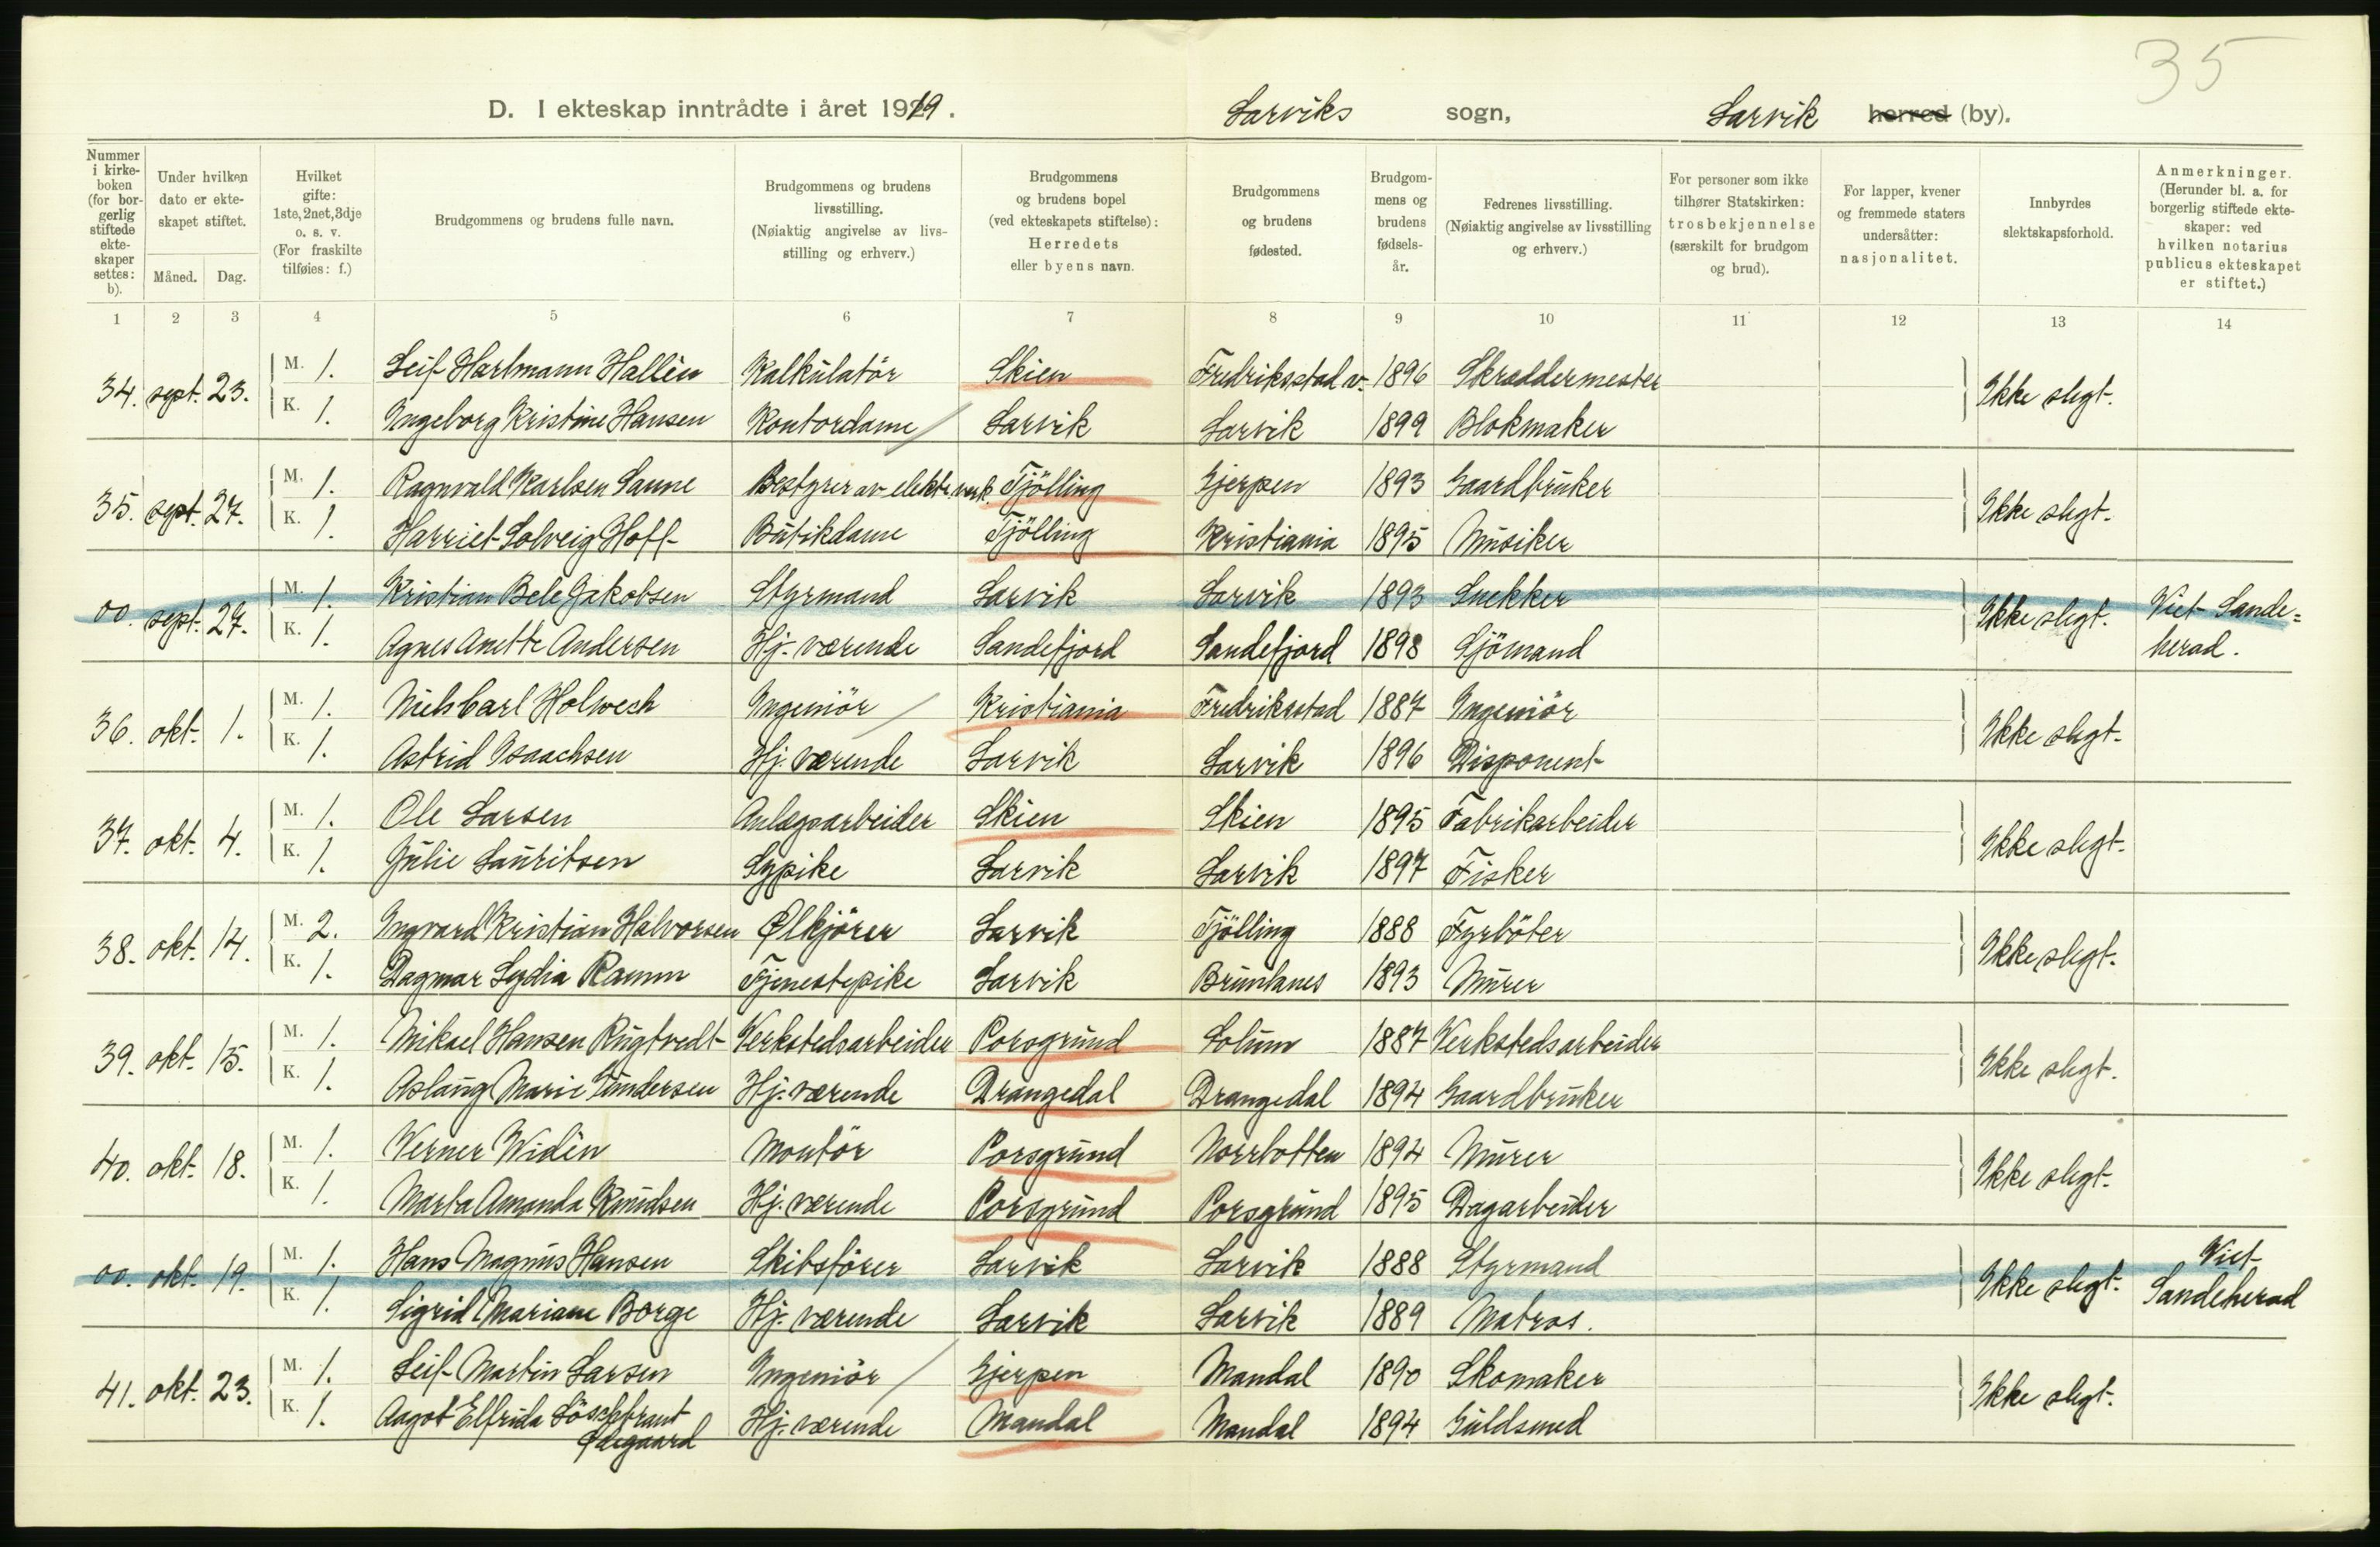 35
D. I ekteskap inntrådte i året 1919. Larviks sogn, Larvik herred (by).
Nummer i kirkeboken (for borgerlig stiftede ekteskaper settes: b).
Under hvilken dato er ekteskapet stiftet.
Måned. Dag.
Hvilket gifte: 1ste, 2net, 3dje o. s. v. (For fraskilte tilføies: f.)
Brudgommens og brudens fulle navn.
Brudgommens og brudens livsstilling. (Nøiaktig angivelse av livsstilling og erhverv.)
Brudgommens og brudens bopel (ved ekteskapets stiftelse): Herredets eller byens navn.
Brudgommens og brudens fødested.
Brudgommens og brudens fødselsår.
Fedrenes livsstilling. (Nøiaktig angivelse av livsstilling og erhverv.)
For personer som ikke tilhører Statskirken: trosbekjennelse (særskilt for brudgom og brud).
For lapper, kvener og fremmede staters undersåtter: nasjonalitet.
Innbyrdes slektskapsforhold.
Anmerkninger. (Herunder bl. a. for borgerlig stiftede ekteskaper: ved hvilken notarius publicus ekteskapet er stiftet.)
1 2 3 4 5 6 7 8 9 10 11 12 13 14
34. sept. 23. M. 1. Leif Hartmann Hallèn Kalkulatör Skien Fredriksstad v. 1896 Skræddermester Ikke slegt.
K. 1. Ingeborg Kristine Hansen Kontordame Larvik Larvik 1899 Blokmaker
35. sept. 27. M. 1. Ragnvald Karlsen Sanne Bestyrer av elektr. verk Tjölling Gjerpen 1893 Gaardbruker Ikke slegt.
K. 1. Harriet Solveig Hoff Butikdame Tjölling Kristiania 1895 Musiker
00. sept. 27. M. 1. Kristian Bele Jakobsen Styrmand Larvik Larvik 1893 Snekker Ikke slegt. Viet Sande=
K. 1. Agnes Anette Andersen Hj. værende Sandefjord Sandefjord 1898 Sjömand herad.
36. okt. 1. M. 1. Niels Carl Holwech Ingeniör Kristiania Fredriksstad 1887 Ingeniör Ikke slegt.
K. 1. Astrid Isaachsen Hj. værende Larvik Larvik 1896 Disponent
37. okt. 4. M. 1. Ole Larsen Anlægsarbeider Skien Skien 1895 Fabrikarbeider Ikke slegt.
K. 1. Julie Lauritsen Sypike Larvik Larvik 1897 Fisker
38. okt. 14. M. 2. Ingvard Kristian Halvorsen Ølkjörer Larvik Tjölling 1888 Fyrböter Ikke slegt.
K. 1. Dagmar Lydia Ramm Tjenestepike Larvik Brunlanes 1893 Murer
39. okt. 15. M. 1. Mikael Hansen Rugtvedt Verkstedsarbeider Porsgrund Solum 1887 Verkstedsarbeider Ikke slegt.
K. 1. Aslaug Marie Gundersen Hj. værende Drangedal Drangedal 1894 Gaardbruker
40. okt. 18. M. 1. Verner Widèn Montör Porsgrund Norrbotten 1894 Murer Ikke slegt.
K. 1. Marta Amanda Knudsen Hj. værende Porsgrund Porsgrund 1895 Dagarbeider
00. okt. 19. M. 1. Hans Magnus Hansen Skibsförer Larvik Larvik 1888 Styrmand Ikke slegt. Viet
K. 1. Sigrid Mariane Borge Hj. værende Larvik Larvik 1889 Matros. Sandeherad
41. okt. 23. M. 1. Leif Martin Larsen Ingeniör Gjerpen Mandal 1890 Skomaker Ikke slegt.
K. 1. Aagot Elfrida Löschbrant Hj. værende Mandal Mandal 1894 Guldsmed
Ødegaard